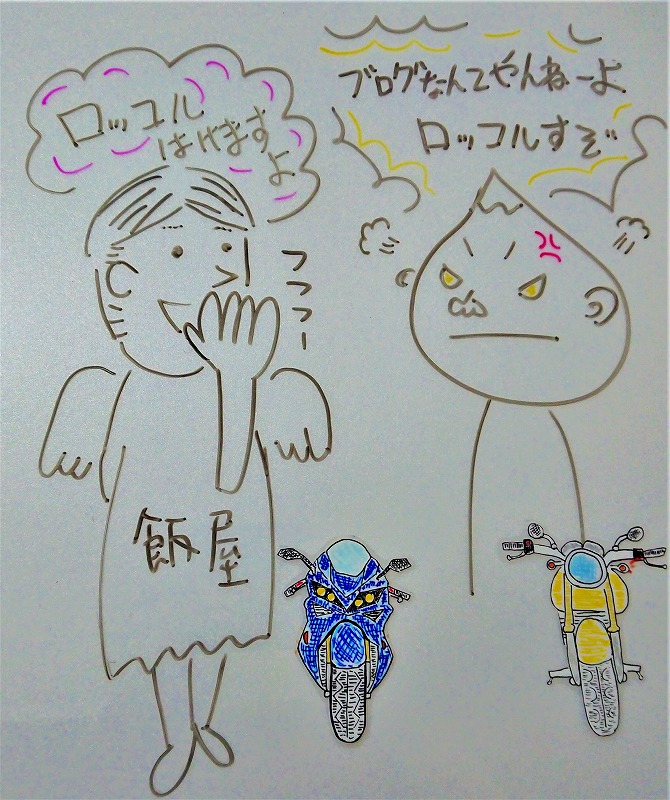 ロッコル
はげます
よ
ブログなんてやんねーよ
ロッコルすぞ
フフフー
飯屋